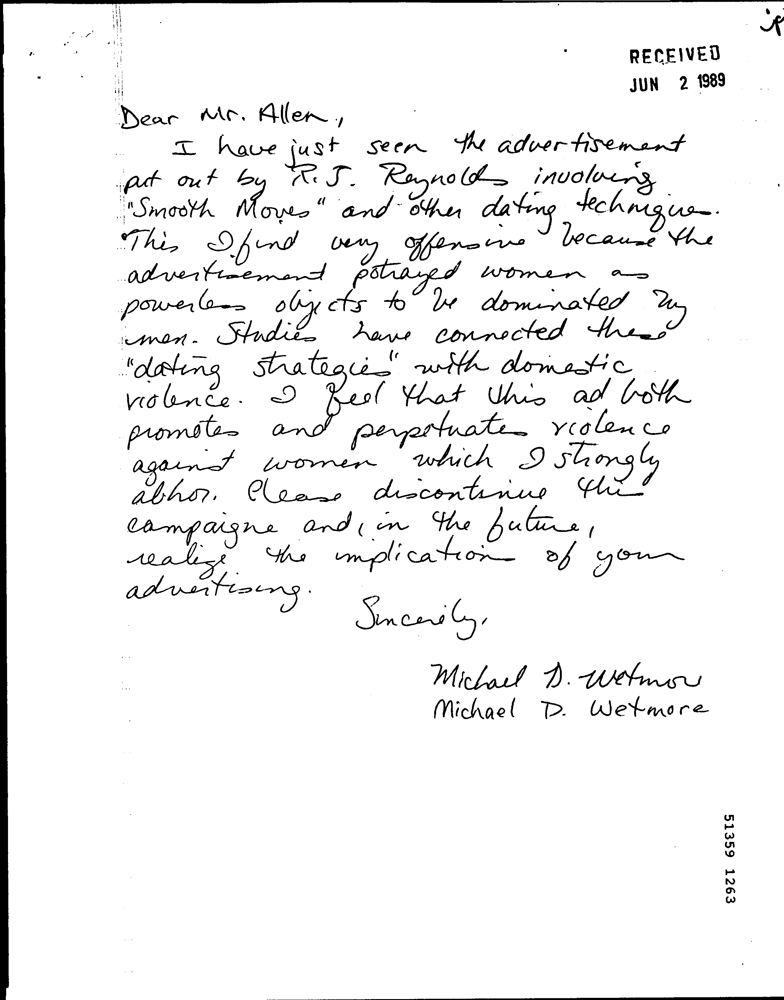 RECEIVED
JUN 2 1989
Dear Mr. Allen,
I have just seen the advertisement
put out by R.J. Reynolds involving
"Smooth Moves" and other dating techniques.
This I find very offensive because the
advertisement potrayed women as
powerless objects to be dominated by
men. Studies have connected these
"dating strategies" with domestic
violence. I feel that this ad both
promotes and perpetuates violence
against women which I strongly
abhor. Please discontinue this
campaigne and, in the future,
realize the implication of your
advertising.
Sincerily,
Michael D. Wetmore
Michael D. Wetmore
51359 1263